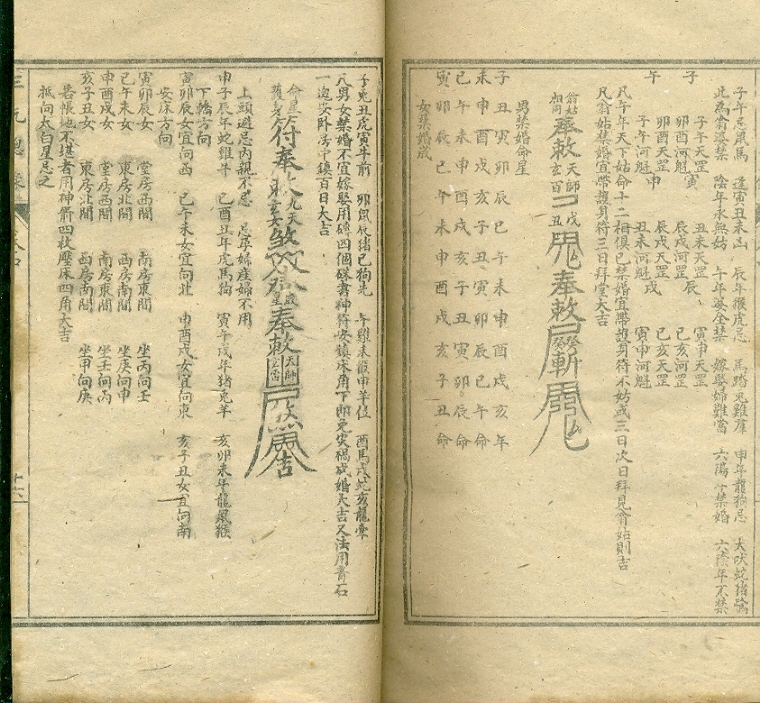 子午忌鼠馬 逢寅丑未凶 辰年猴虎忌 馬踏兎雞羣 申年龍狗忌 犬吠蛇猪
此為翁婆禁 陰年永無姑 午年婆全禁 嫁娶婦難當 六陽 禁婚 六陰年不禁
子 子午天罡 寅 丑未天罡 辰 寅申天罡
卯酉河魁 辰戌河魁 巳亥河魁
午 卯酉天罡 申 辰戌天罡 戌 巳亥天罡
子午河魁 丑未河魁 寅申河魁
凡午年天下姑命十二相俱已禁婚宜帶護身符不妨或三日次日拜見翁姑則吉
凡翁姑禁婚宜帶護身符三日拜堂大吉
翁姑相冲 奉敕 天師 奉敕 斬
男禁婚命星
子丑寅卯辰巳午未申酉戌亥年
未申酉戌亥子丑寅卯辰巳午命
巳午未申酉戌亥子丑寅卯辰命
寅卯辰巳午未申酉戌亥子丑命
女禁婚歲
子兎丑虎寅牛前 卯鼠辰猪巳狗先 午雞未猴申羊位 酉馬戌蛇亥龍
八男女禁婚不宜嫁娶用磚四個硃書神符安鎮床角下即免灾禍成婚大吉又法用青石
一塊安臥房中鎮百日大吉
符奉 九天 煞 奉敕 吉
上頭避忌内親不忌 忌孕婦産婦不用
申子辰年蛇雞牛 巳酉丑年虎馬狗 寅午戌年猪兎羊 亥卯未年龍鼠猴
下轎方向
寅卯辰女宜向西 巳午未女宜向北 申酉戌女宜向東 亥子丑女宜向南
安床方向
寅卯辰女 堂房西間 南房東間 坐丙向壬
巳午未女 東房北間 西房南間 坐庚向甲
申酉戌女 堂房西間 南房東間 坐壬向丙
亥子丑女 東房北間 西房南間 坐甲向庚
若帳地不堪者用神箭四枚壓床四角大吉
抵向太白星忌之